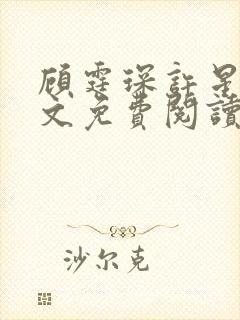 顾霆琛許星
文免費閱讀
沙尔克